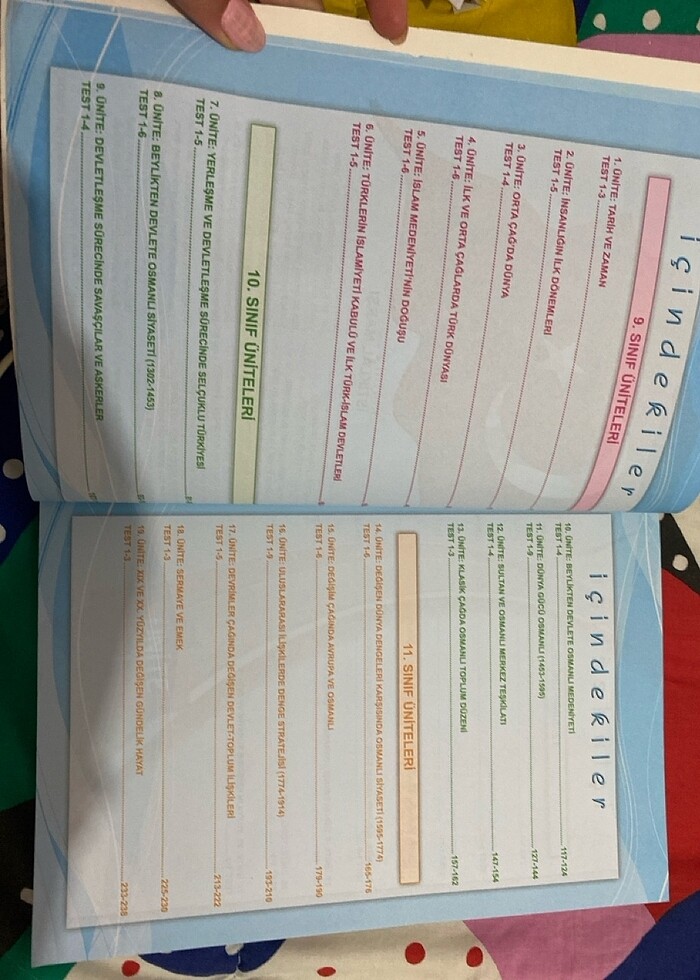 içindekiler
9. SINIF ÜNİTELERİ
1. ÜNİTE: TARİH VE ZAMAN
TEST 1-3
2. ÜNİTE: İNSANLIĞIN İLK DÖNEMLERİ
TEST 1-5
3. ÜNİTE: ORTA ÇAĞ'DA DÜNYA
TEST 1-4
4. ÜNİTE: İLK VE ORTA ÇAĞLARDA TÜRK DÜNYASI
TEST 1-6
5. ÜNİTE: İSLAM MEDENİYETİ'NİN DOĞUŞU
TEST 1-6
6. ÜNİTE: TÜRKLERİN İSLAMİYETİ KABULÜ VE İLK TÜRK-İSLAM DEVLETLERİ
TEST 1-5
10. SINIF ÜNİTELERİ
7. ÜNİTE: YERLEŞME VE DEVLETLEŞME SÜRECİNDE SELÇUKLU TÜRKİYESİ
TEST 1-5
8. ÜNİTE: BEYLİKTEN DEVLETE OSMANLI SİYASETİ (1302-1453)
TEST 1-6
9. ÜNİTE: DEVLETLEŞME SÜRECİNDE SAVAŞÇILAR VE ASKERLER
TEST 1-4
içindekiler
10. ÜNİTE: BEYLİKTEN DEVLETE OSMANLI MEDENİYETİ
TEST 1-4 117-124
11. ÜNİTE: DÜNYA GÜCÜ OSMANLI (1453-1595)
TEST 1-9 127-144
12. ÜNİTE: SULTAN VE OSMANLI MERKEZ TEŞKİLATI
TEST 1-4 147-154
13. ÜNİTE: KLASİK ÇAĞDA OSMANLI TOPLUM DÜZENİ
TEST 1-3 157-162
11. SINIF ÜNİTELERİ
14. ÜNİTE: DEĞİŞEN DÜNYA DENGELERİ KARŞISINDA OSMANLI SİYASETİ (1595-1774)
TEST 1-6 165-176
15. ÜNİTE: DEĞİŞİM ÇAĞINDA AVRUPA VE OSMANLI
TEST 1-6 179-190
16. ÜNİTE: ULUSLARARASI İLİŞKİLERDE DENGE STRATEJİSİ (1774-1914)
TEST 1-9 193-210
17. ÜNİTE: DEVRİMLER ÇAĞINDA DEĞİŞEN DEVLET-TOPLUM İLİŞKİLERİ
TEST 1-5 213-222
18. ÜNİTE: SERMAYE VE EMEK
TEST 1-3 225-230
19. ÜNİTE: XIX VE XX. YÜZYILDA DEĞİŞEN GÜNDELİK HAYAT
TEST 1-3 233-238